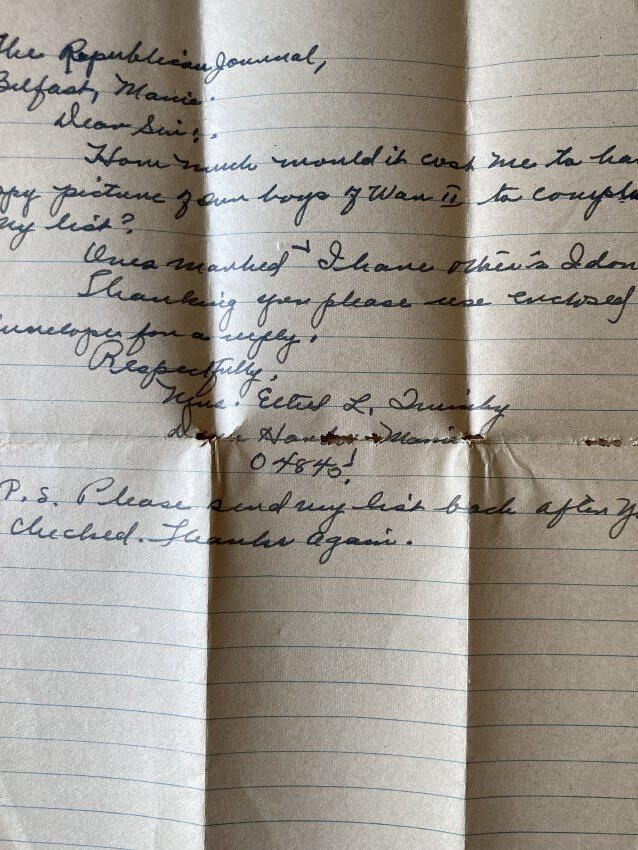 The Republican Journal,
Belfast, Maine.
Dear Sir:.
How much would it cost me to hav
opy picture of our boys of War II to comple
my list?
Ones marked ✓ I have other's I don
Thanking you please use enclosed
envelope for a reply.
Respectfully,
Mrs. Ethel L. Quimby
Maine
04840!
P.S. Please send my list back after y
checked. Thanks again.